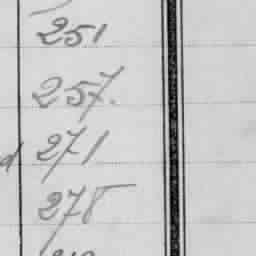 251
257.
d 271
278